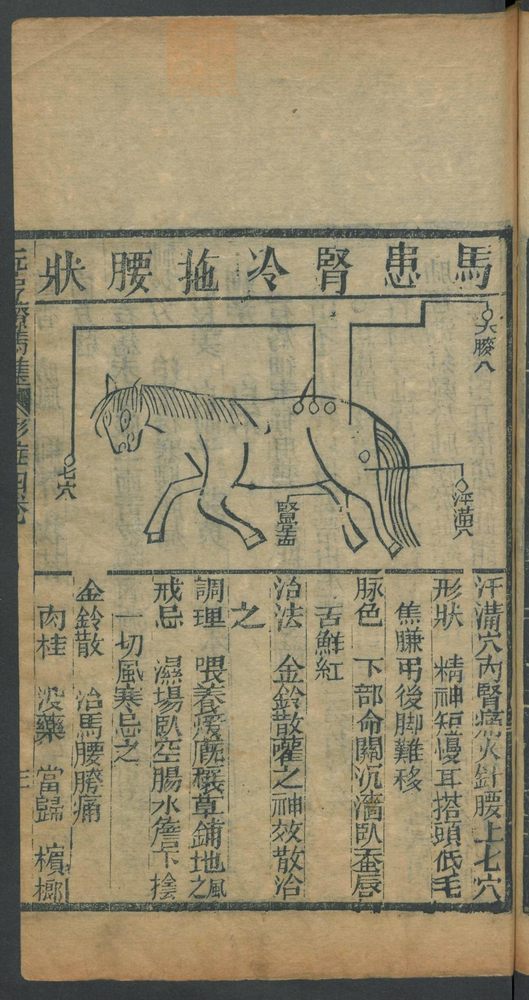 馬患腎冷拖腰狀
大胯穴
七穴
腎堂血
汗溝穴
汗溝穴內腎痛火針腰上七穴
形狀 精神短慢耳搭頭低毛
焦䐑弔後脚難移
脉色 下部命關沉濇臥蚕唇
舌鮮紅
治法 金鈴散灌之神效散治
之
調理 喂養煖廐穰草鋪地之風
戒忌 濕塲臥空腸水簷下捨
一切風寒忌之
金鈴散 治馬腰胯痛
肉桂 没藥 當歸 檳榔